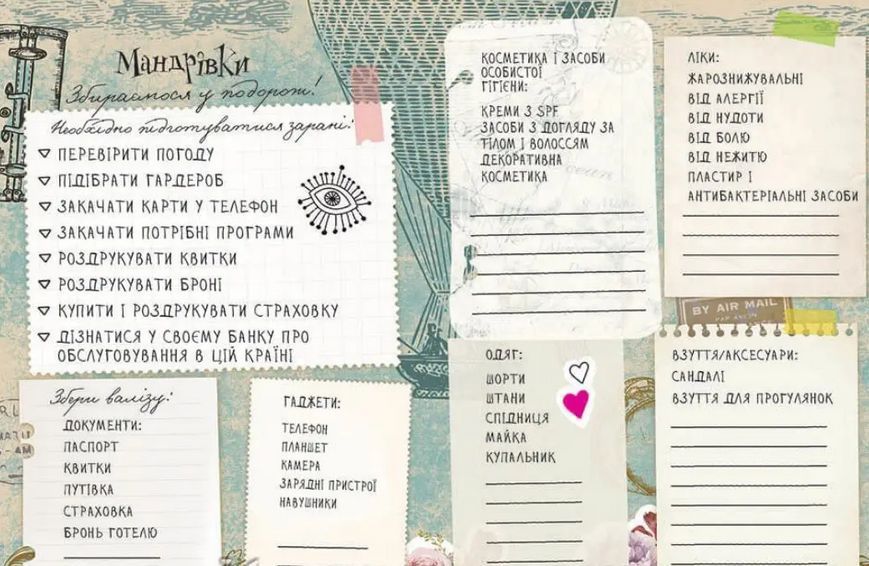 Мандрівки
Збираємося у подорож!
Необхідно підготуватися зарані:
ПЕРЕВІРИТИ ПОГОДУ
ПІДІБРАТИ ГАРДЕРОБ
ЗАКАЧАТИ КАРТИ У ТЕЛЕФОН
ЗАКАЧАТИ ПОТРІБНІ ПРОГРАМИ
РОЗДРУКУВАТИ КВИТКИ
РОЗДРУКУВАТИ БРОНІ
КУПИТИ І РОЗДРУКУВАТИ СТРАХОВКУ
ДІЗНАТИСЯ У СВОЄМУ БАНКУ ПРО
ОБСЛУГОВУВАННЯ В ЦІЙ КРАЇНІ
Збери валізу:
ДОКУМЕНТИ:
ПАСПОРТ
КВИТКИ
ПУТІВКА
СТРАХОВКА
БРОНЬ ГОТЕЛЮ
ГАДЖЕТИ:
ТЕЛЕФОН
ПЛАНШЕТ
КАМЕРА
ЗАРЯДНІ ПРИСТРОЇ
НАВУШНИКИ
КОСМЕТИКА І ЗАСОБИ
ОСОБИСТОЇ
ГІГІЄНИ:
КРЕМИ З SPF
ЗАСОБИ З ДОГЛЯДУ ЗА
ТІЛОМ І ВОЛОССЯМ
ДЕКОРАТИВНА
КОСМЕТИКА
ЛІКИ:
ЖАРОЗНИЖУВАЛЬНІ
ВІД АЛЕРГІЇ
ВІД НУДОТИ
ВІД БОЛЮ
ВІД НЕЖИТЮ
ПЛАСТИР І
АНТИБАКТЕРІАЛЬНІ ЗАСОБИ
BY AIR MAIL
PAR AVION
ОДЯГ:
ШОРТИ
ШТАНИ
СПІДНИЦЯ
МАЙКА
КУПАЛЬНИК
ВЗУТТЯ/АКСЕСУАРИ:
САНДАЛІ
ВЗУТТЯ ДЛЯ ПРОГУЛЯНОК